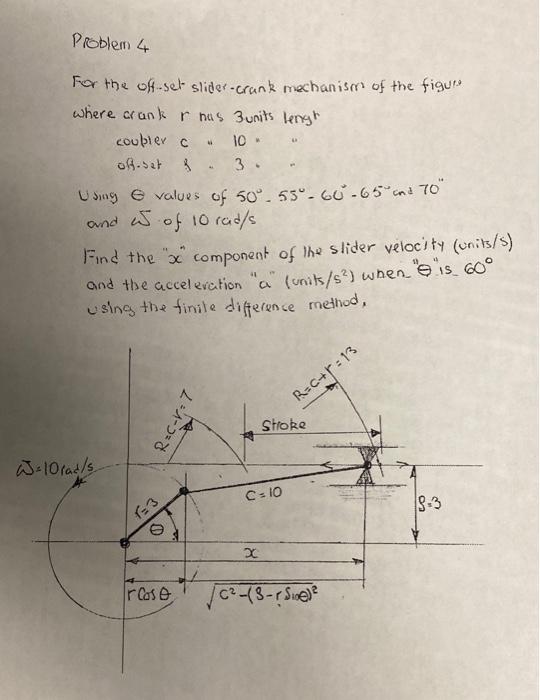 Problem 4
For the off-set slider-crank mechanism of the figure
where crank r has 3 units lenght
coupler c " 10 " "
off-set S " 3 " "
Using θ values of 50° - 55° - 60° - 65° and 70°
and ω of 10 rad/s
Find the "x" component of the slider velocity (units/s)
and the acceleration "a" (units/s²) when "θ" is 60°
using the finite difference method.
R=C+r=13
R=C-r=7
Stroke
ω=10 rad/s
r=3
C=10
S=3
θ
x
r Cosθ
√C²-(S-r Sinθ)²